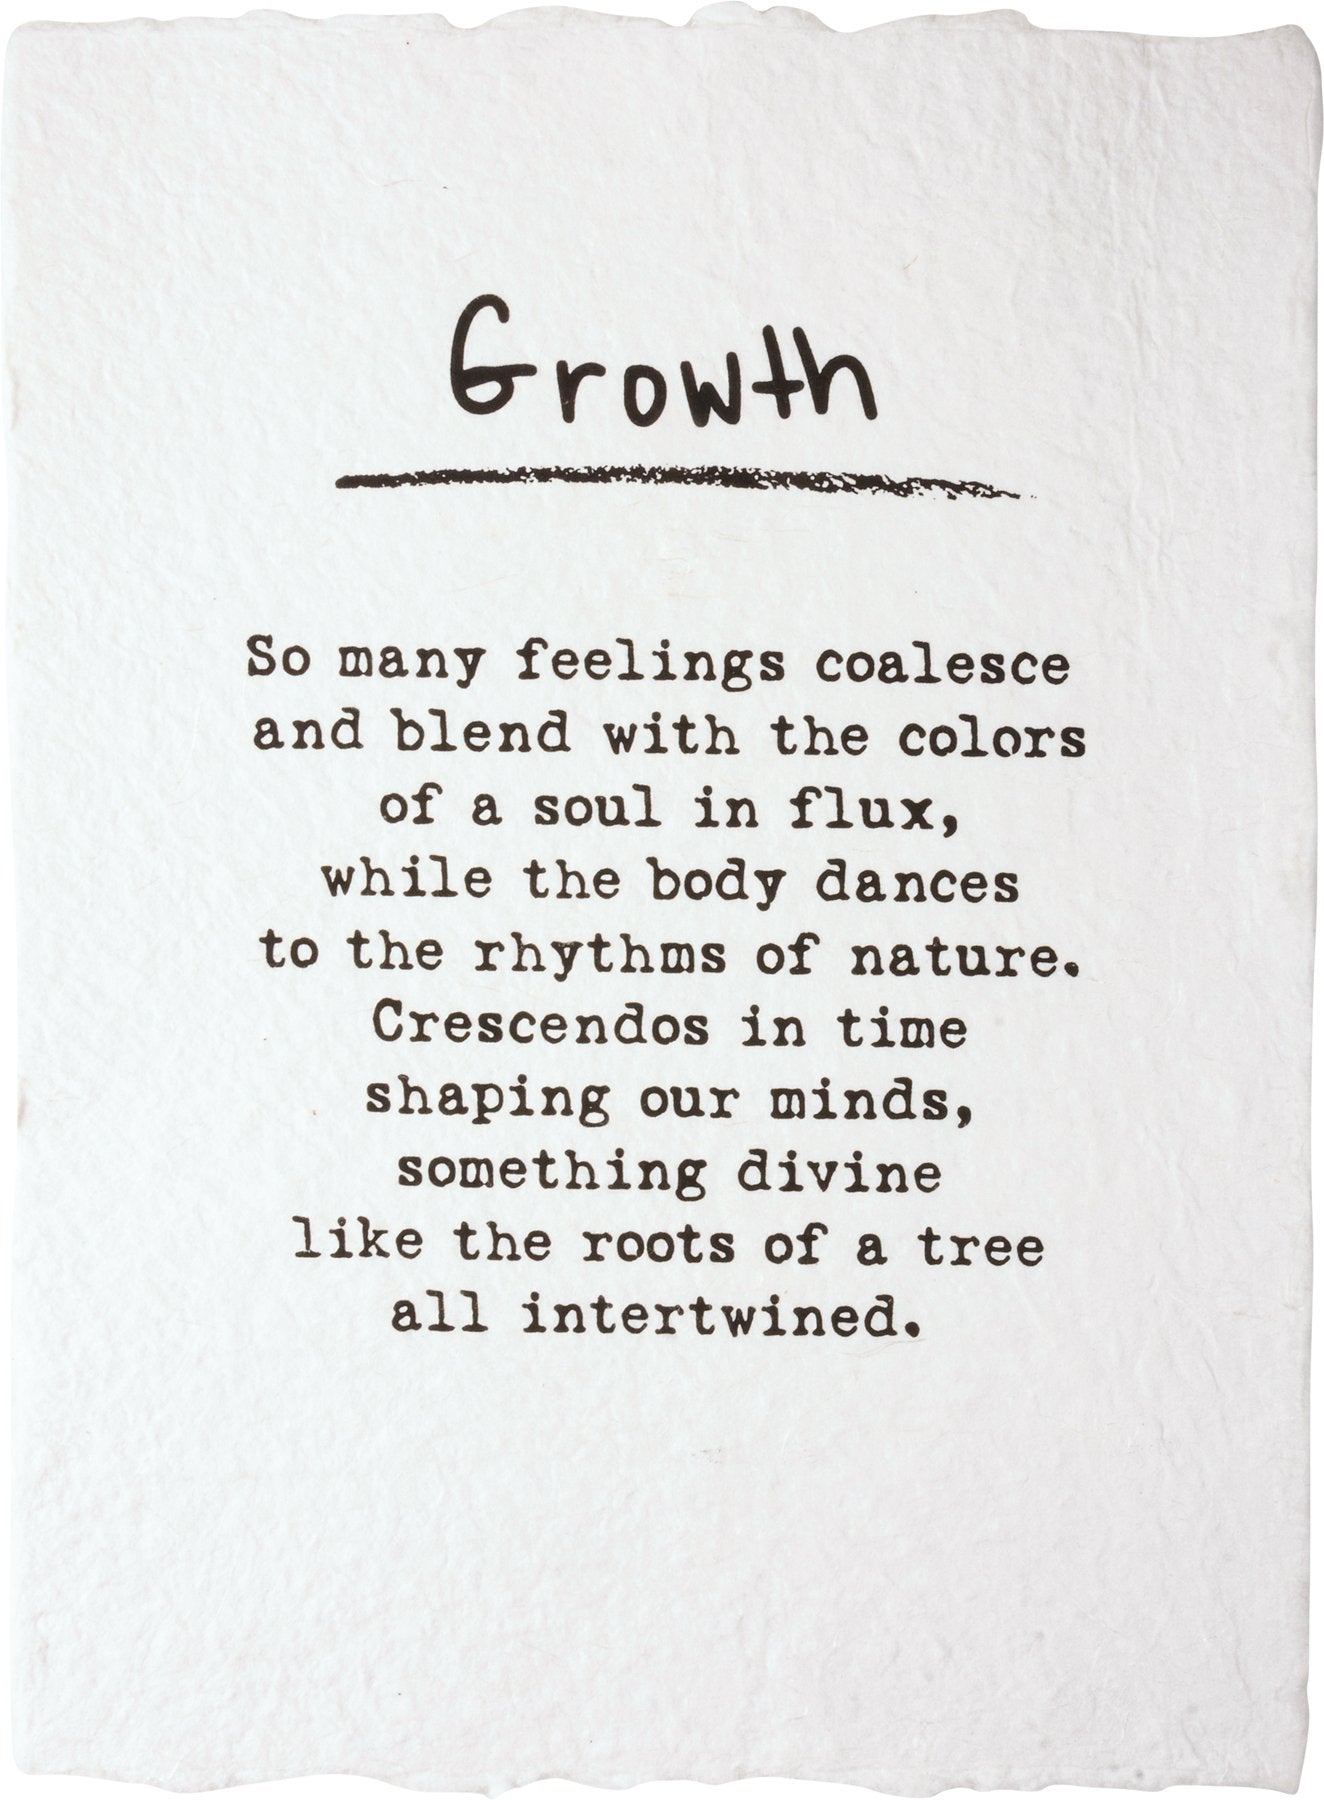 Growth
So many feelings coalesce
and blend with the colors
of a soul in flux,
while the body dances
to the rhythms of nature.
Crescendos in time
shaping our minds,
something divine
like the roots of a tree
all intertwined.